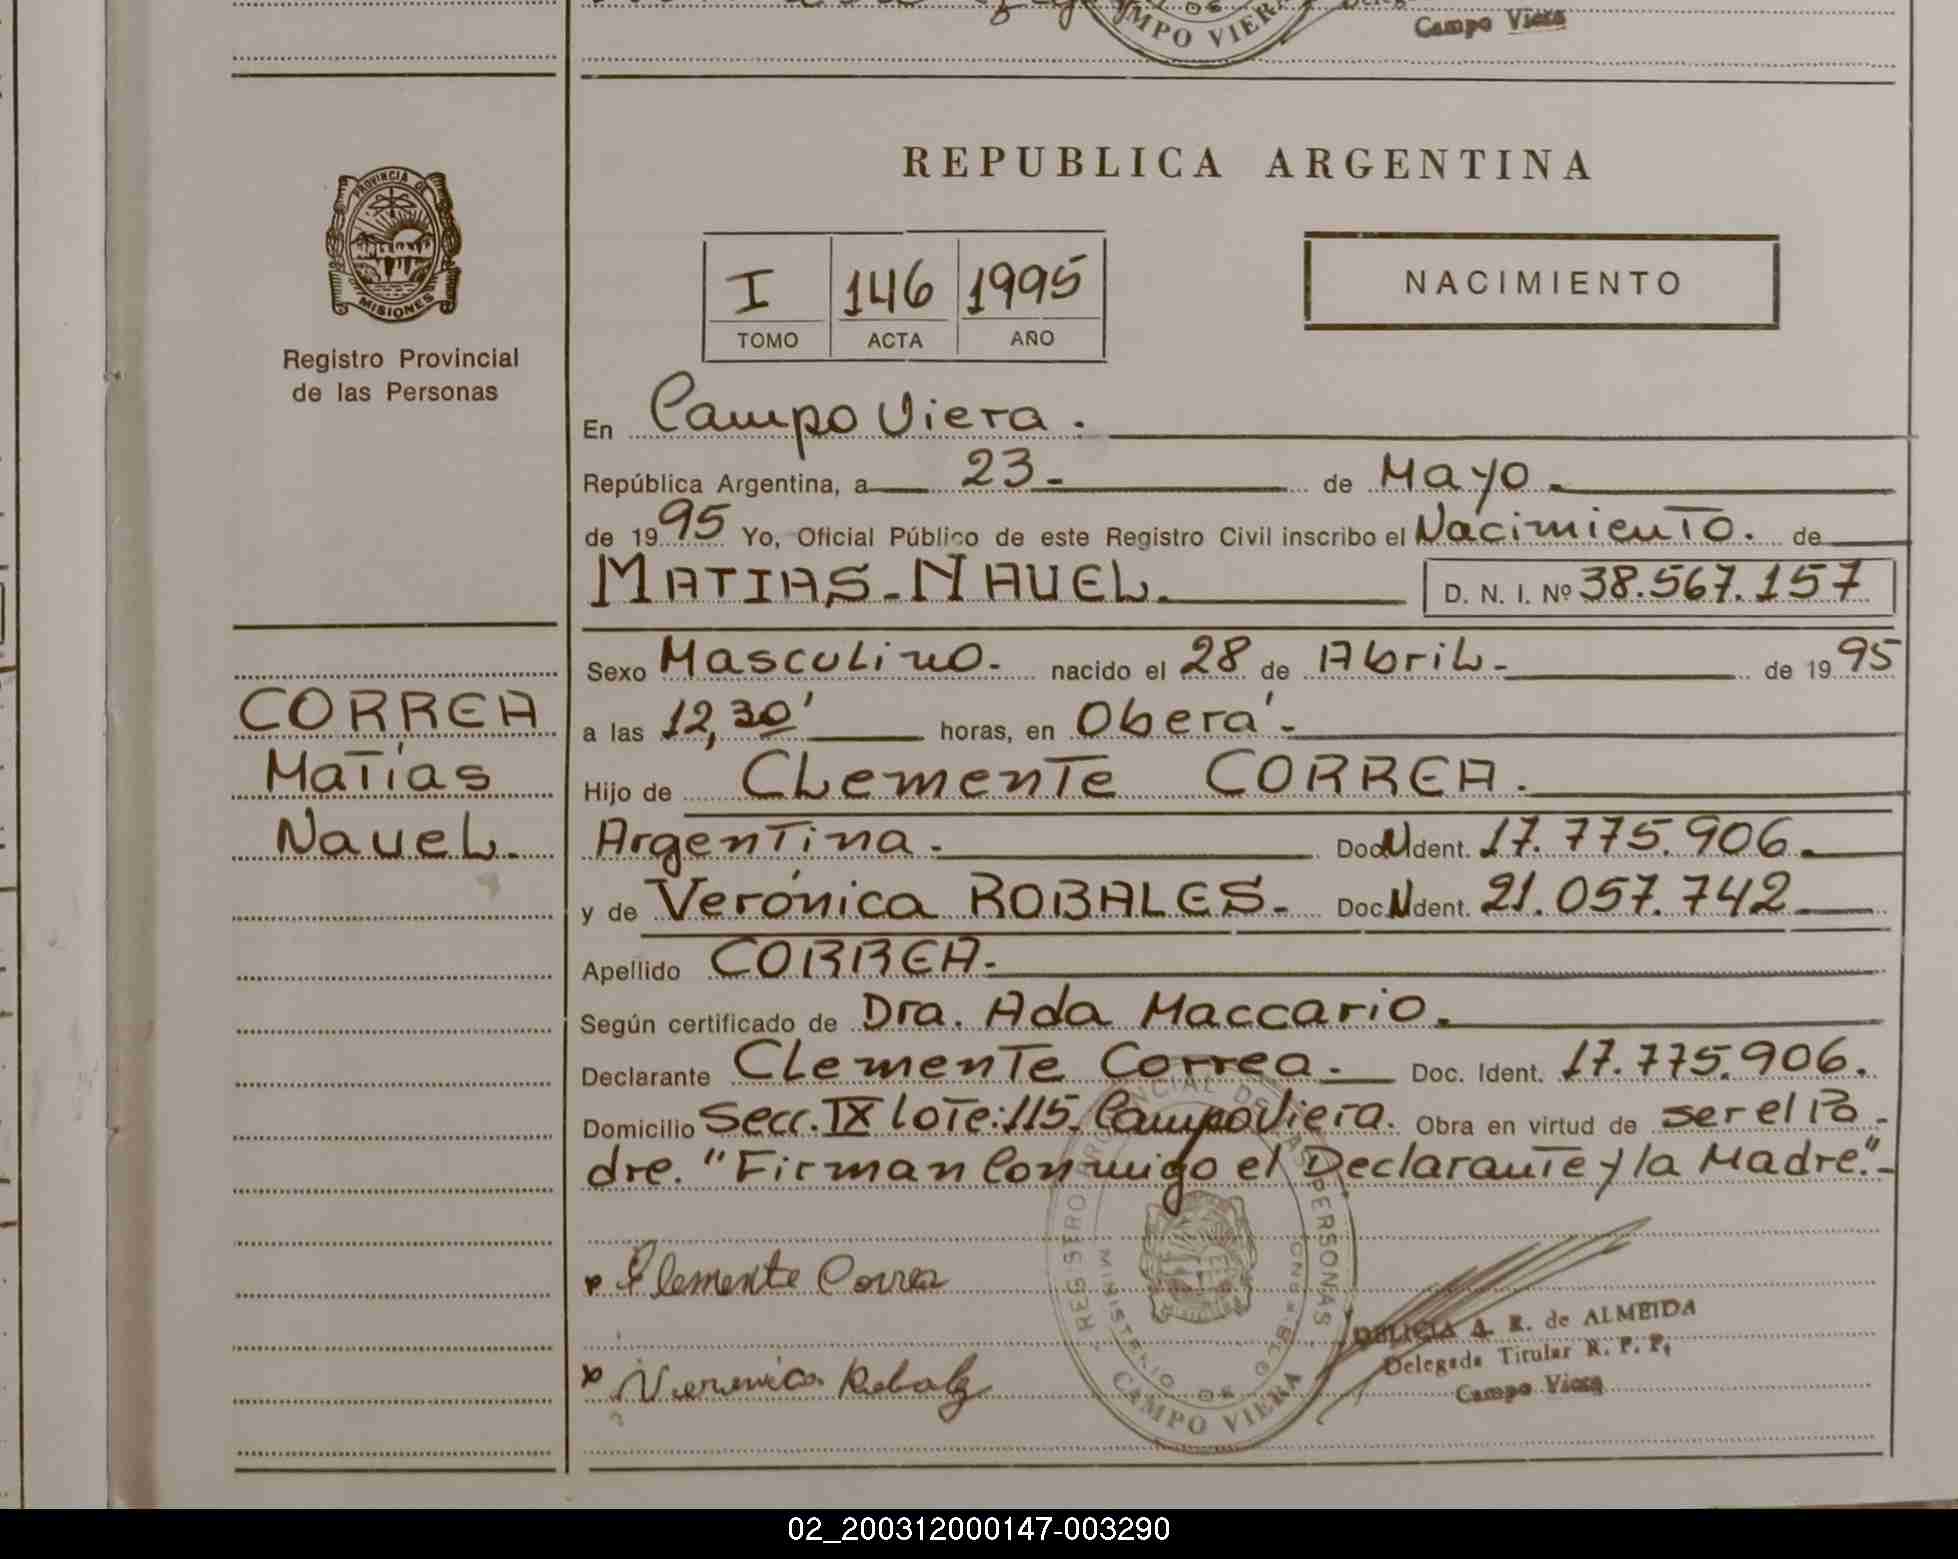 CAMPO VIERA
Campo Viera
PROVINCIA DE
MISIONES
Registro Provincial
de las Personas
REPUBLICA ARGENTINA
I 146 1995
TOMO ACTA AÑO
NACIMIENTO
En Campo Viera.
República Argentina, a 23- de Mayo.
de 1995 Yo, Oficial Público de este Registro Civil inscribo el Nacimiento. de
MATIAS-NAUEL. D. N. I. Nº 38.567.157
Sexo Masculino. nacido el 28 de Abril- de 1995
a las 12,30' horas, en Oberá-
Hijo de Clemente CORREA.
Argentina. Doc. Ident. 17.775.906.
y de Verónica ROBALES. Doc. Ident. 21.057.742
Apellido CORREA-
Según certificado de Dra. Ada Maccario.
Declarante Clemente Correa. Doc. Ident. 17.775.906.
Domicilio Secc. IX lote:115. Campo Viera. Obra en virtud de ser el Pa-
dre. "Firman Conmigo el Declarante y la Madre."-
CORREA
Matías
Nauel.
Clemente Correa
Veronica Robales
REGISTRO PROVINCIAL DE LAS PERSONAS
MINISTERIO DE GOB.
CAMPO VIERA
DELICIA A. R. de ALMEIDA
Delegada Titular R. P. P.
Campo Viera
02_200312000147-003290